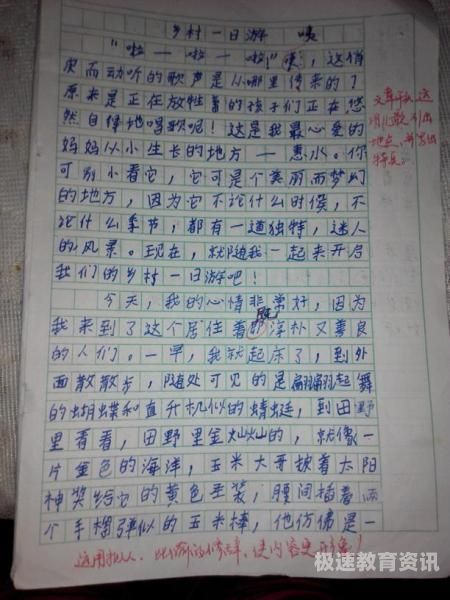 乡村一日游 咦
“啦—啦—啦”咦，这俏
皮而动听的歌声是从哪里传来的？
原来是正在放牲畜的孩子们正在悠
然自得地唱歌呢！这是我最心爱的
妈妈从小生长的地方—惠水。你
可别小看它，它可是个美丽而梦幻
的地方，因为它不论什么时候，不
论什么季节，都有一道独特，迷人
的风景。现在，就随我一起来开启
我们的乡村一日游吧！
今天，我的心情非常好，因为
我来到了这个居住着既淳朴又善良
的人们。一早，我就起床了，到外
面散散步，随处可见的是翩翩起舞
的蝴蝶和直升机似的蜻蜓，到田野
里看看，田野里金灿灿的，就像一
片金色的海洋，玉米大哥披着太阳
神奖给它的黄色圣装，腰间插着两
个手榴弹似的玉米棒，他仿佛是一
文章以
儿歌引出
地点，并写出
特点。
运用拟人、比喻的修辞，使内容更形象！
极速教育资讯